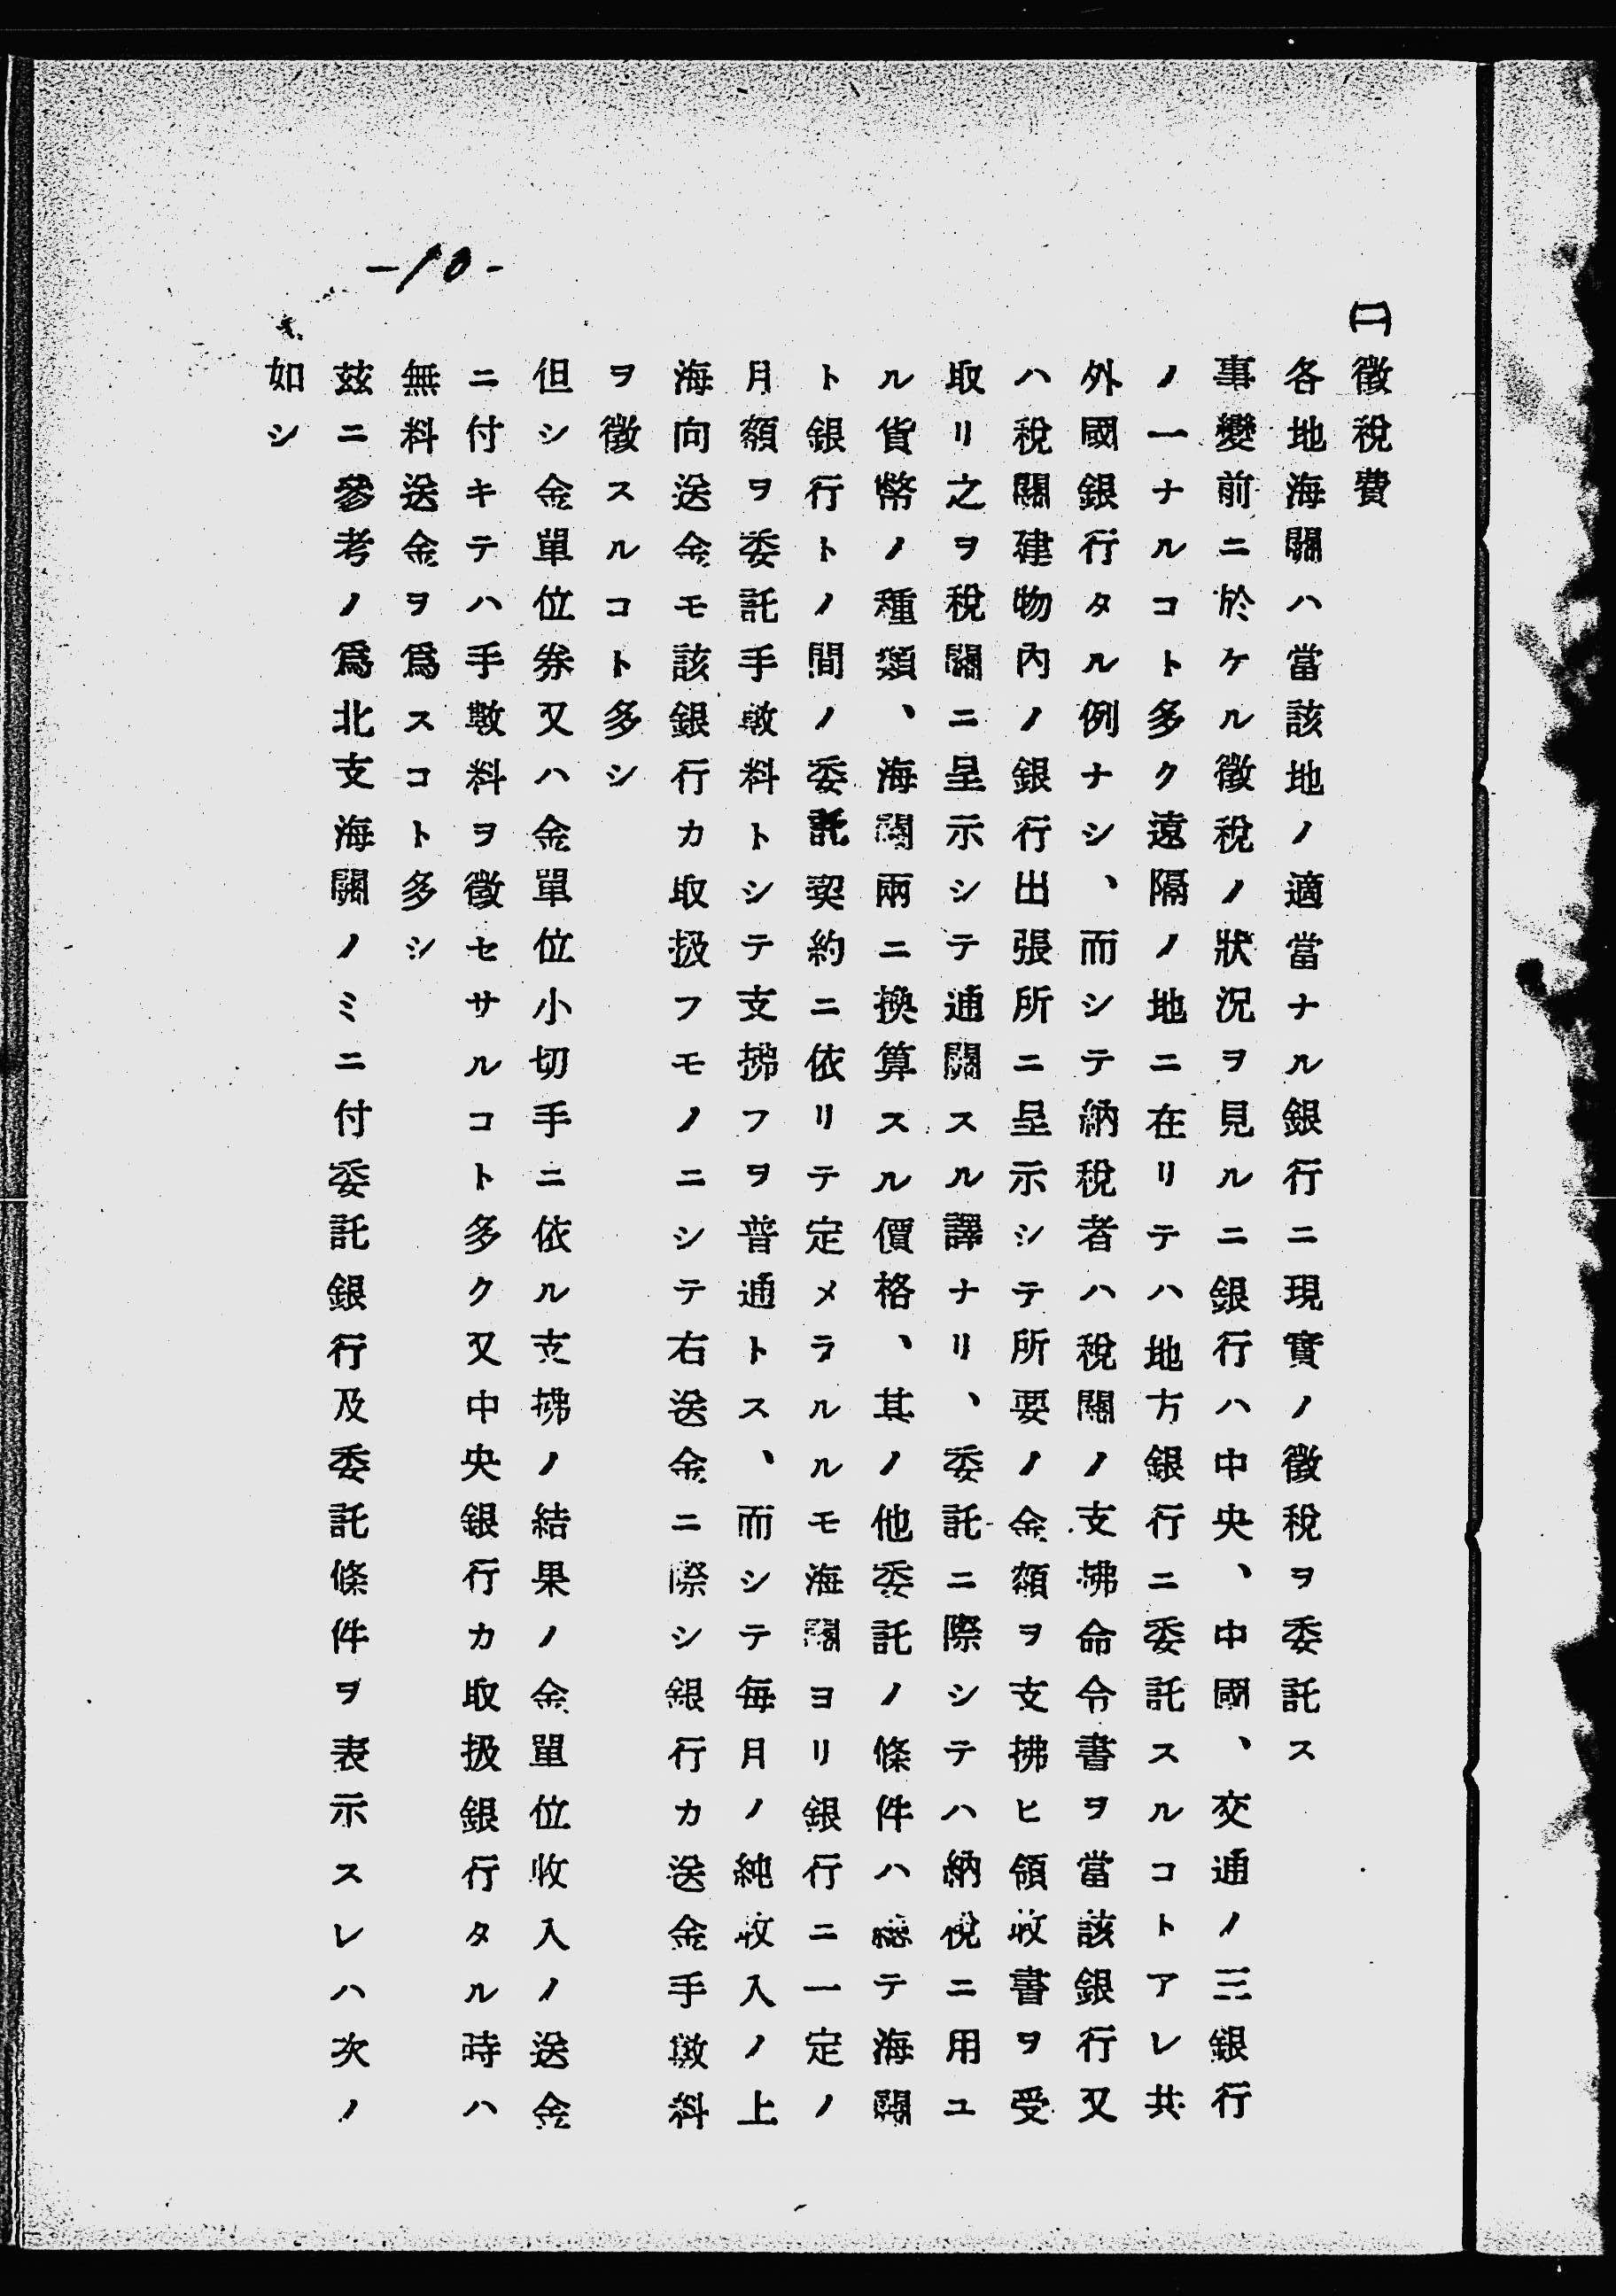 ㈡徵稅費
各地海關ハ當該地ノ適當ナル銀行ニ現實ノ徵稅ヲ委託ス
事變前ニ於ケル徵稅ノ狀況ヲ見ルニ銀行ハ中央、中國、交通ノ三銀行
ノ一ナルコト多ク遠隔ノ地ニ在リテハ地方銀行ニ委託スルコトアレ共
外國銀行タル例ナシ、而シテ納稅者ハ稅關ノ支拂命令書ヲ當該銀行又
ハ稅關建物內ノ銀行出張所ニ呈示シテ所要ノ金額ヲ支拂ヒ領收書ヲ受
取リ之ヲ稅關ニ呈示シテ通關スル譯ナリ、委託ニ際シテハ納稅ニ用ユ
ル貨幣ノ種類、海關兩ニ換算スル價格、其ノ他委託ノ條件ハ總テ海關
ト銀行トノ間ノ委託契約ニ依リテ定メラルルモ海關ヨリ銀行ニ一定ノ
月額ヲ委託手數料トシテ支拂フヲ普通トス、而シテ每月ノ純收入ノ上
海向送金モ該銀行カ取扱フモノニシテ右送金ニ際シ銀行カ送金手數料
ヲ徵スルコト多シ
但シ金單位券又ハ金單位小切手ニ依ル支拂ノ結果ノ金單位收入ノ送金
ニ付キテハ手數料ヲ徵セサルコト多ク又中央銀行カ取扱銀行タル時ハ
無料送金ヲ爲スコト多シ
茲ニ參考ノ爲北支海關ノミニ付委託銀行及委託條件ヲ表示スレハ次ノ
如シ
-10-